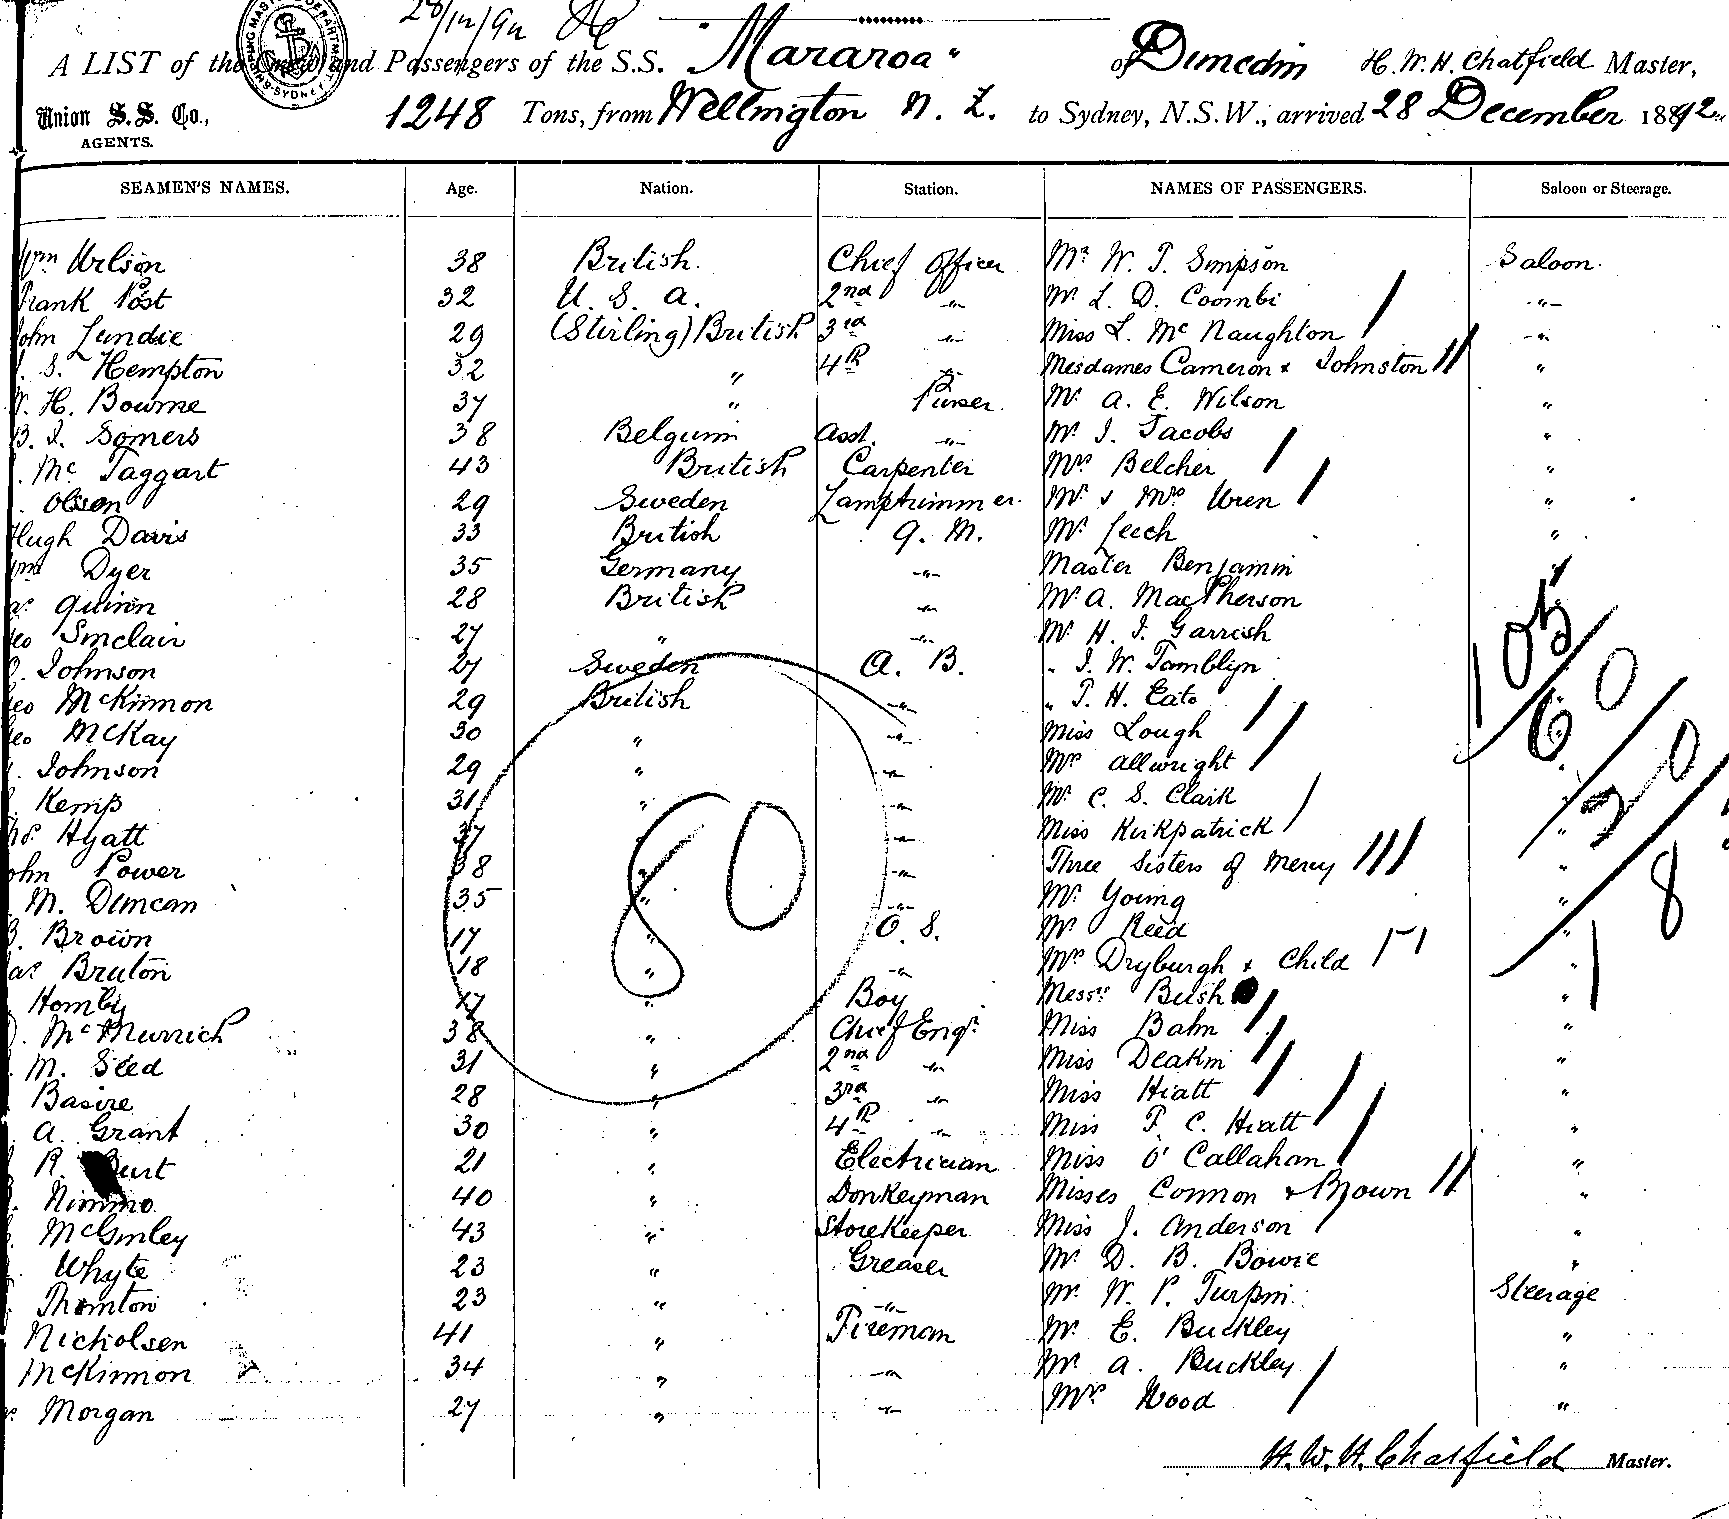 28/12/92
A LIST of the Crew and Passengers of the S.S. "Mararoa" of Dunedin H. W. H. Chatfield Master,
Union S.S. Co., AGENTS. 1248 Tons, from Wellington N. Z. to Sydney, N.S.W., arrived 28 December 1892
SEAMEN'S NAMES. Age. Nation. Station. NAMES OF PASSENGERS. Saloon or Steerage.
Wm Wilson 38 British. Chief Officer Mr. W. T. Simpson Saloon.
Frank Post 32 U. S. A. 2nd " Mr. L. D. Coombe "
John Lundie 29 (Stirling) British 3rd " Miss L. McNaughton "
S. Hempton 32 " 4th " Mesdames Cameron & Johnston "
H. Bourne 37 " Purser. Mr. A. E. Wilson "
B. J. Somers 38 Belguim Asst. " Mr. I. Jacobs "
McTaggart 43 British Carpenter Mrs Belcher "
Olsen 29 Sweden Lamptrimmer. Mr. & Mrs Wren "
Hugh Davis 33 British Q. M. Mr. Leech "
Wm Dyer 35 Germany " Master Benjamin "
Jas Quinn 28 British " Mr. A. MacPherson
Geo Sinclair 27 " " Mr. H. J. Garrish
Johnson 27 Sweden A. B. " J. W. Tamblyn
Geo McKinnon 29 British " " T. H. Eato
Geo McKay 30 " " Miss Lough
Johnson 29 " " Mrs Allwright
Kemp 31 " " Mr. C. S. Clark
Hyatt 37 " " Miss Kirkpatrick "
John Power 38 " " Three Sisters of Mercy "
M. Duncan 35 " " Mr. Young "
Brown 17 " O. S. Mr. Reed "
Jas Bruton 18 " " Mrs Dryburgh & Child "
Hornby 17 " Boy Messrs Bush "
McMurrich 38 " Chief Engr. Miss Bahn "
M. Seed 31 " 2nd " Miss Deakin "
Basire 28 " 3rd " Miss Hiatt "
A. Grant 30 " 4th " Miss T. C. Hiatt "
R. Burt 21 " Electrician Miss O'Callahan "
Nimmo 40 " Donkeyman Misses Connon & Brown "
McGinley 43 " Storekeeper Miss J. Anderson "
Whyte 23 " Greaser Mr. D. B. Bowie "
Thornton 23 " " Mr. W. P. Turpin Steerage
Nicholsen 41 " Fireman Mr. E. Buckley "
McKinnon 34 " " Mr. A. Buckley "
Morgan 27 " " Mrs Wood "
80
105
60
20
8
1
H. W. H. Chatfield Master.